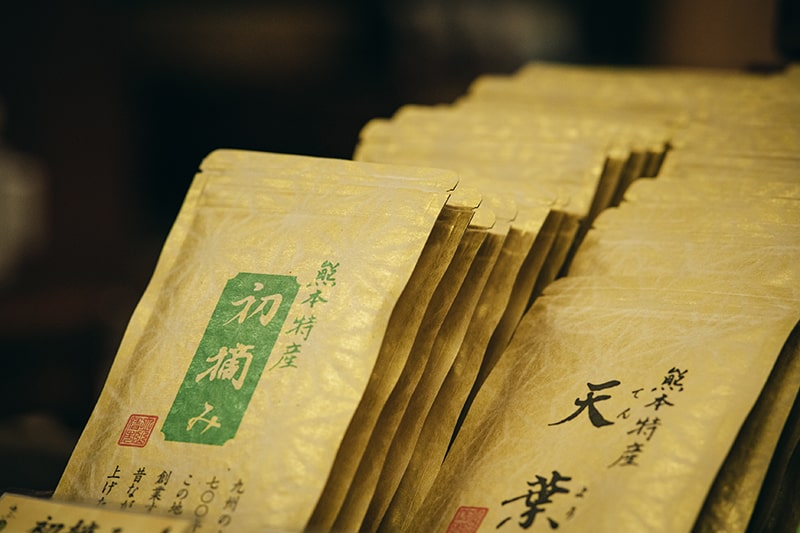 熊本特産
初摘み
九州の
七〇〇年
この地
創業す
昔なが
上げた
熊本特産
天葉
てん
よう
初摘み